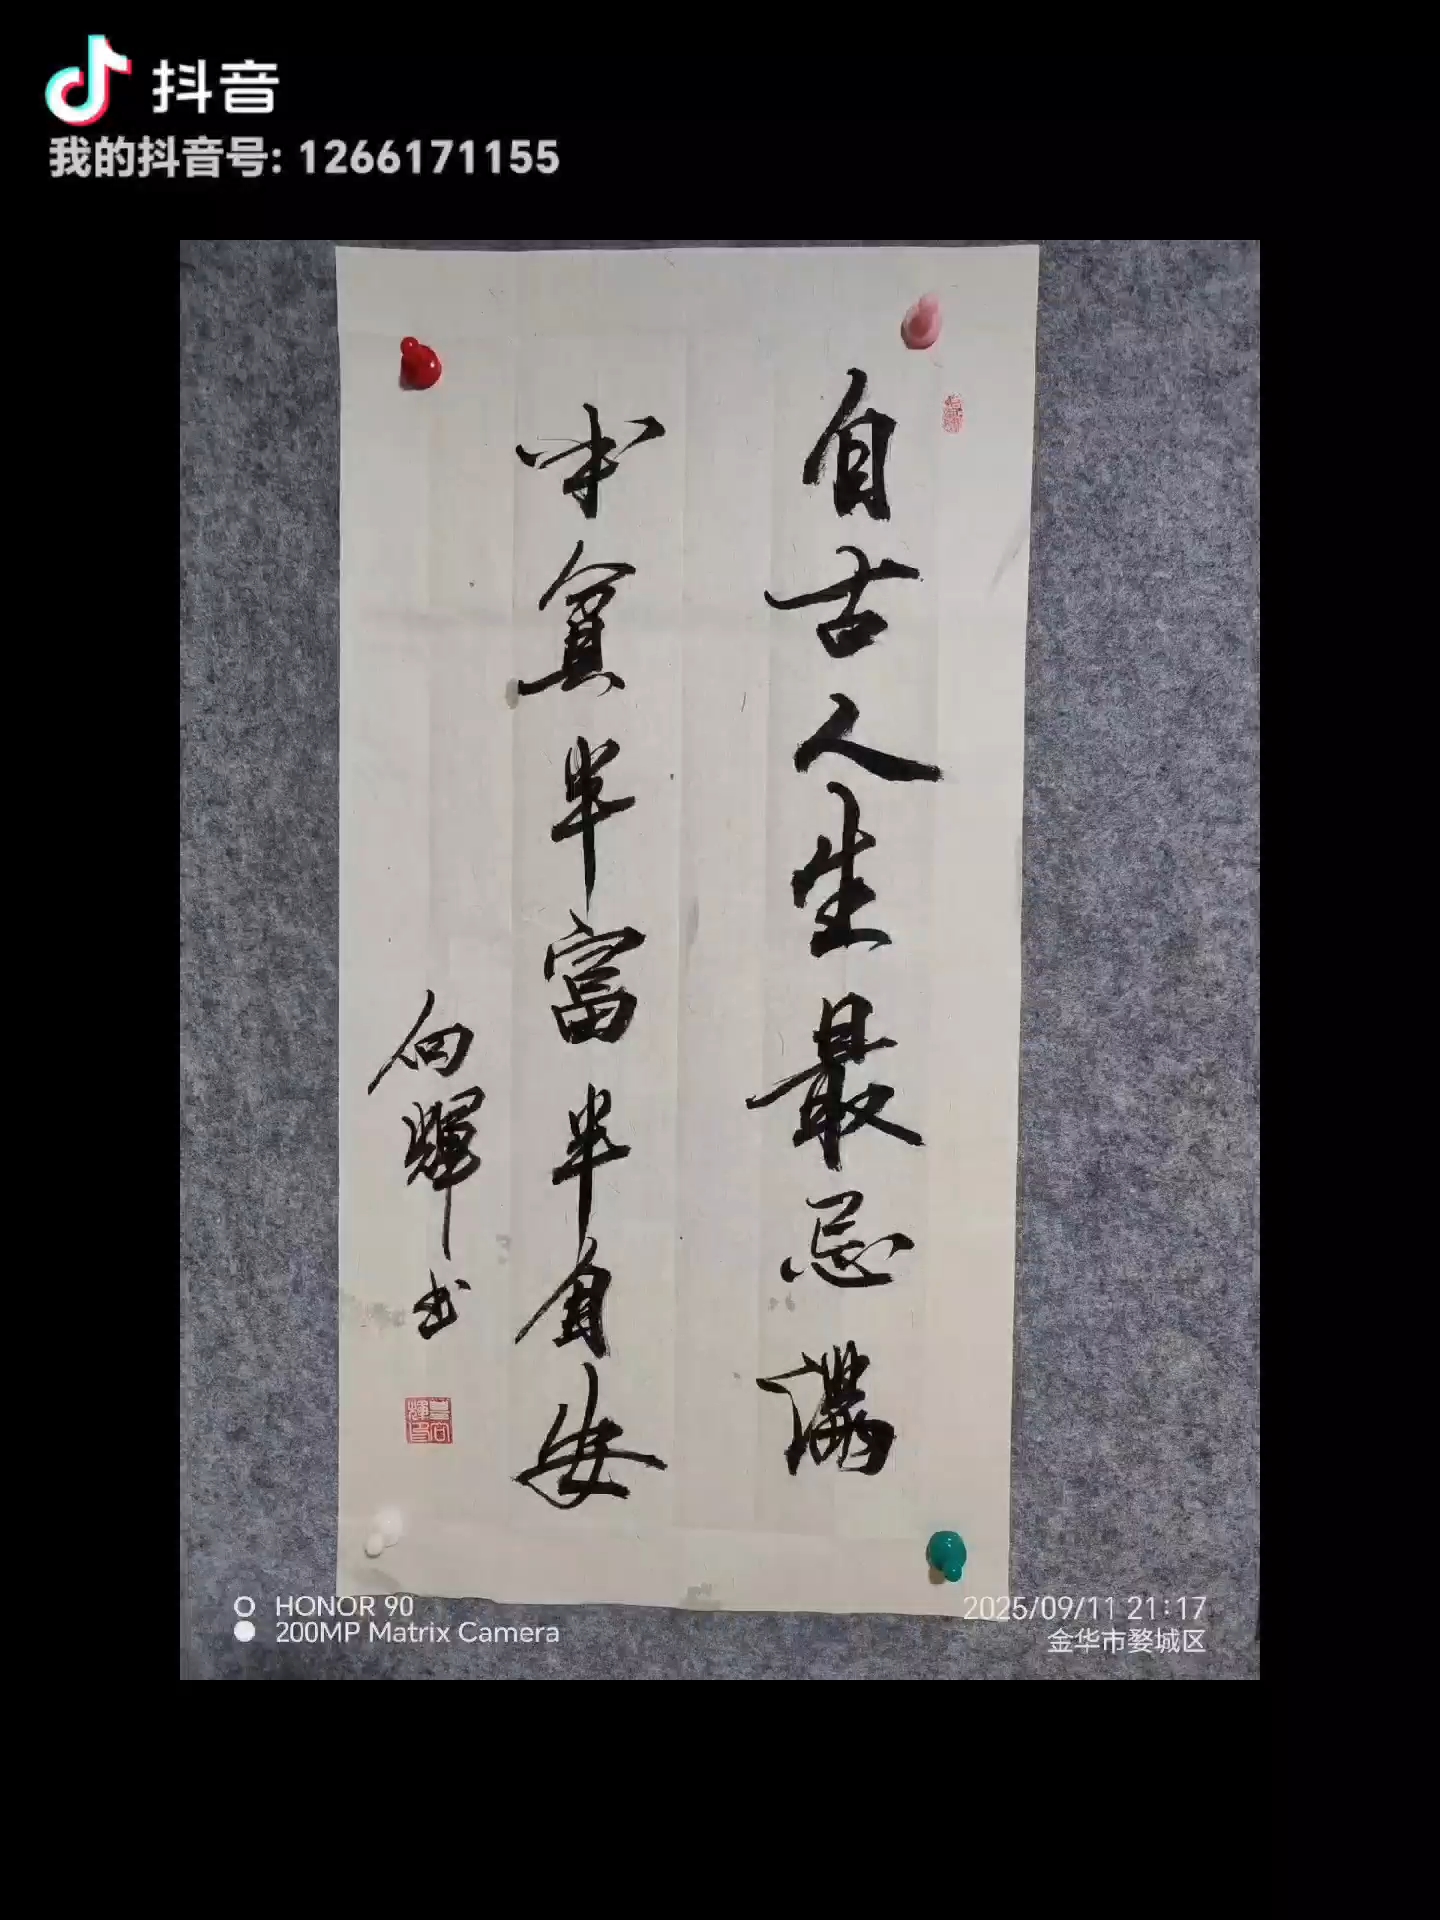 抖音
我的抖音号: 1266171155
自古人生最忌满
半贫半富半自安
向辉书
HONOR 90
200MP Matrix Camera
2025/09/11 21:17
金华市婺城区